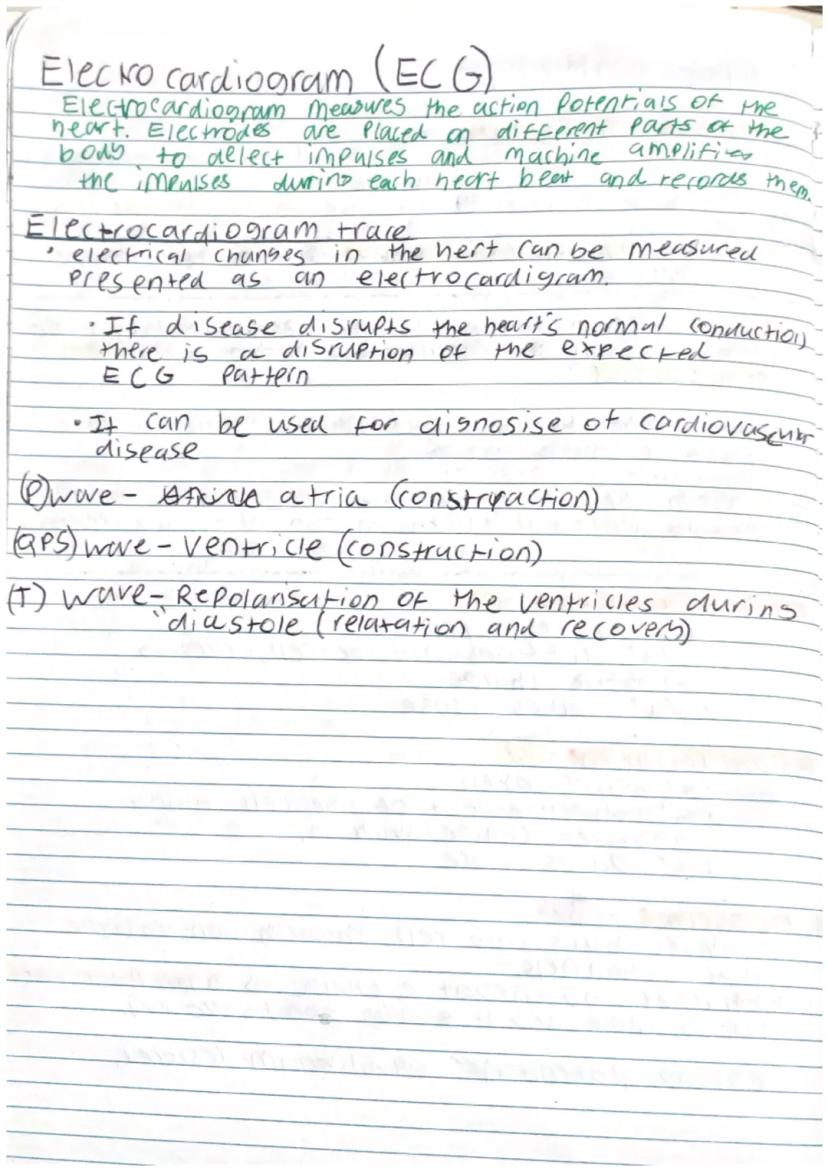 Electrocardiogram (ECG)
Electrocardiogram measures the action potentials of the
heart. Electrodes are placed on different parts of the
body to detect impulses and machine amplifies
the impulses during each heart beat and records them.
Electrocardiogram trace
• electrical changes in the hert can be measured
presented as an electrocardigram.
• If disease disrupts the heart's normal conduction
there is a disruption of the expected
ECG pattern
• It can be used for disnosise of cardiovascular
disease
(P) wave - atria (constryaction)
(QPS) wave - ventricle (construction)
(T) wave - Repolarisation of the ventricles during
diastole (relaxation and recovery)